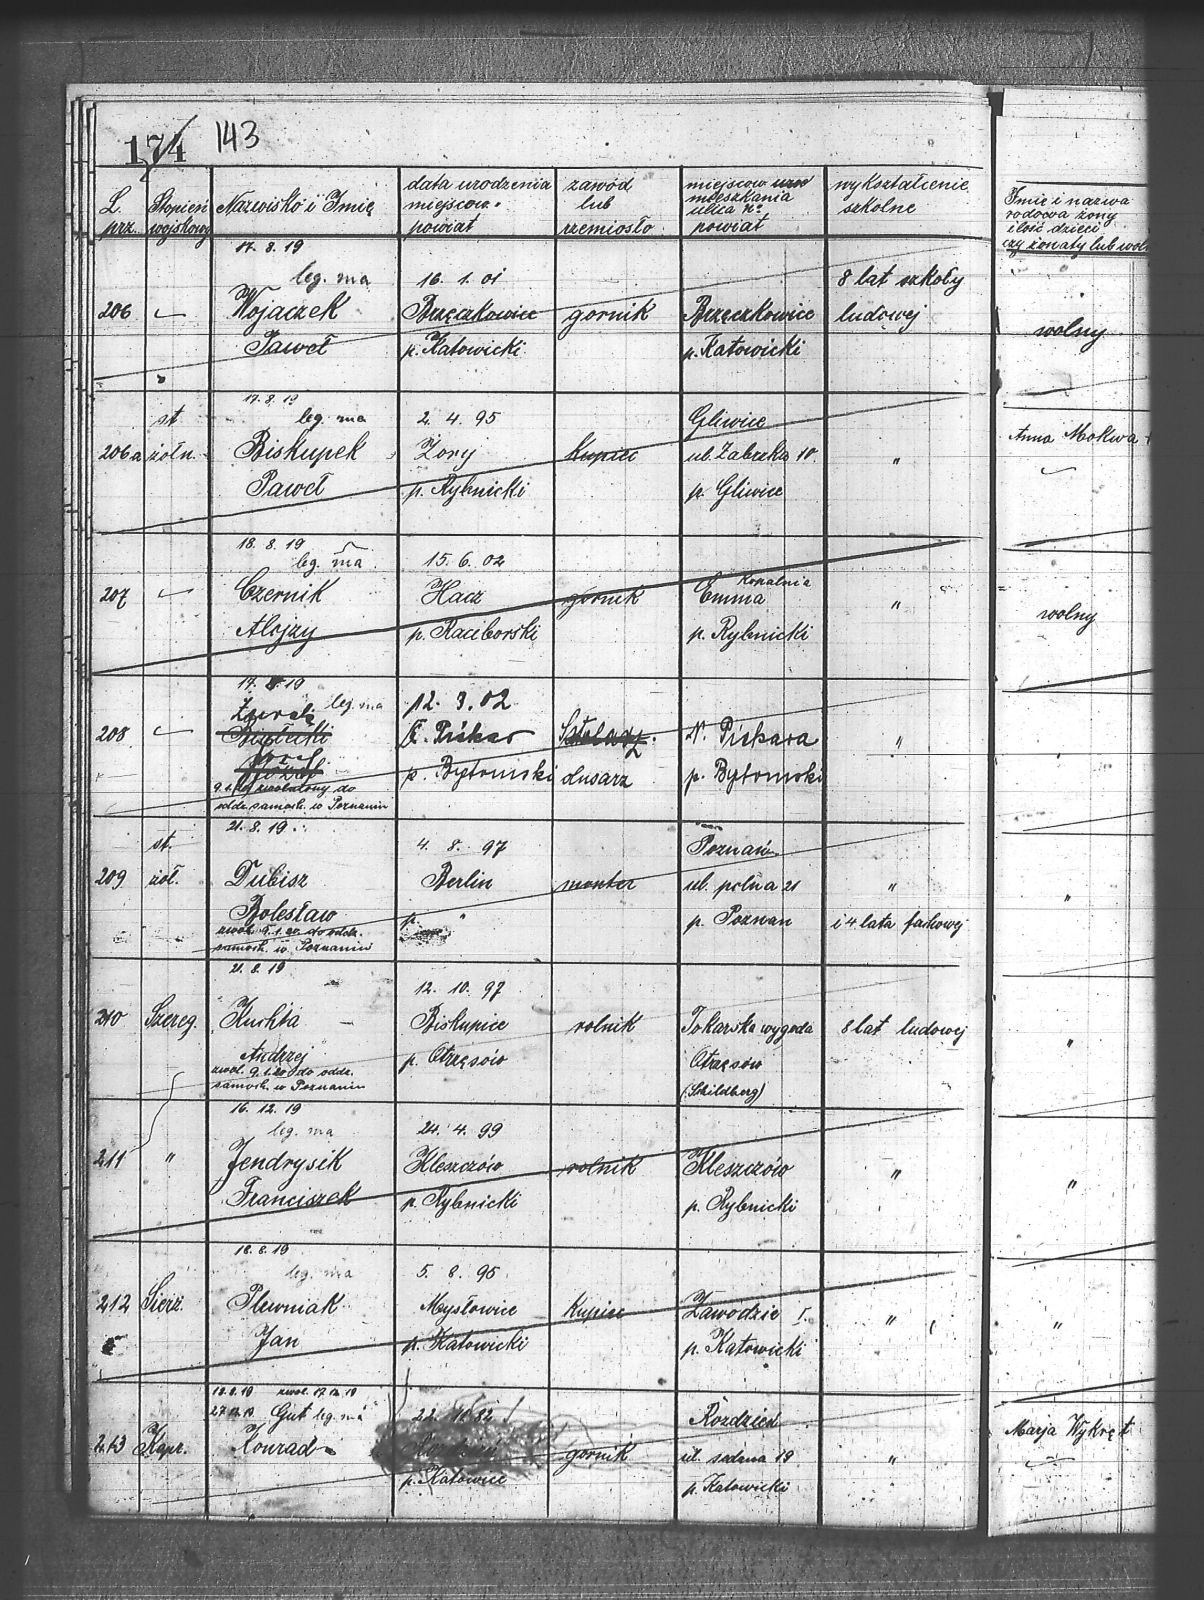 174 143
L. prz. Stopień wojskowy Nazwisko i Imię data urodzenia miejscow. powiat zawód lub rzemiosło miejscow mieszkania ulica nr powiat wykształcenie szkolne Imię i nazwa rodowa żony ilość dzieci czy żonaty lub woln
17. 8. 19
leg. ma 16. 1. 01 8 lat szkoły
206 Wojaczek Brzęczkowice gornik Brzęczkowice ludowej wolny
Paweł p. Katowicki p. Katowicki
17. 8. 19
st leg. ma 2. 4. 95 Gliwice
206a żołn. Biskupek Żory kupiec ul. Zabrzka 10. " Anna Mokwa
Paweł p. Rybnicki p. Gliwice
18. 8. 19
leg. ma 15. 6. 02 Kopalnia
207 Czernik Hacz gornik Emma " wolny
Alojzy p. Raciborski p. Rybnicki
17. 8. 19
leg. ma 12. 3. 02
208 Piskar N. Piskara " "
p. Bytomski p. Bytomski
9. 1. do
oddz. samoch. w Poznaniu
21. 8. 19
st. 4. 8. 97 Poznań
209 żoł. Dubisz Berlin monter ul. polna 21 " "
Bolesław p. " p. Poznan i 4 lata fachowej
zwol. 9. 1. 20 do oddz.
samoch. w Poznaniu
21. 8. 19
12. 10. 97
210 Szereg. Kuchta Biskupice rolnik Tokarska wygoda 8 lat ludowej "
Andrzej p. Otrzęsów Otrzęsów
zwol. 9. 1. 20 do oddz.
samoch. w Poznaniu (Schildberg)
16. 12. 19
leg. ma 24. 4. 99
211 " Jendrysik Kleszczów rolnik Kleszczów " "
Franciszek p. Rybnicki p. Rybnicki
18. 8. 19
leg. ma 5. 8. 95
212 Sierż. Plewniak Mysłowice Kupiec Zawodzie I. " "
Jan p. Katowicki p. Katowicki
zwol. 17. 12. 19
Gut leg. ma Rozdzień
213 Kapr. Konrad gornik 19 " Marja Wykręt
p. Katowice p. Katowicki